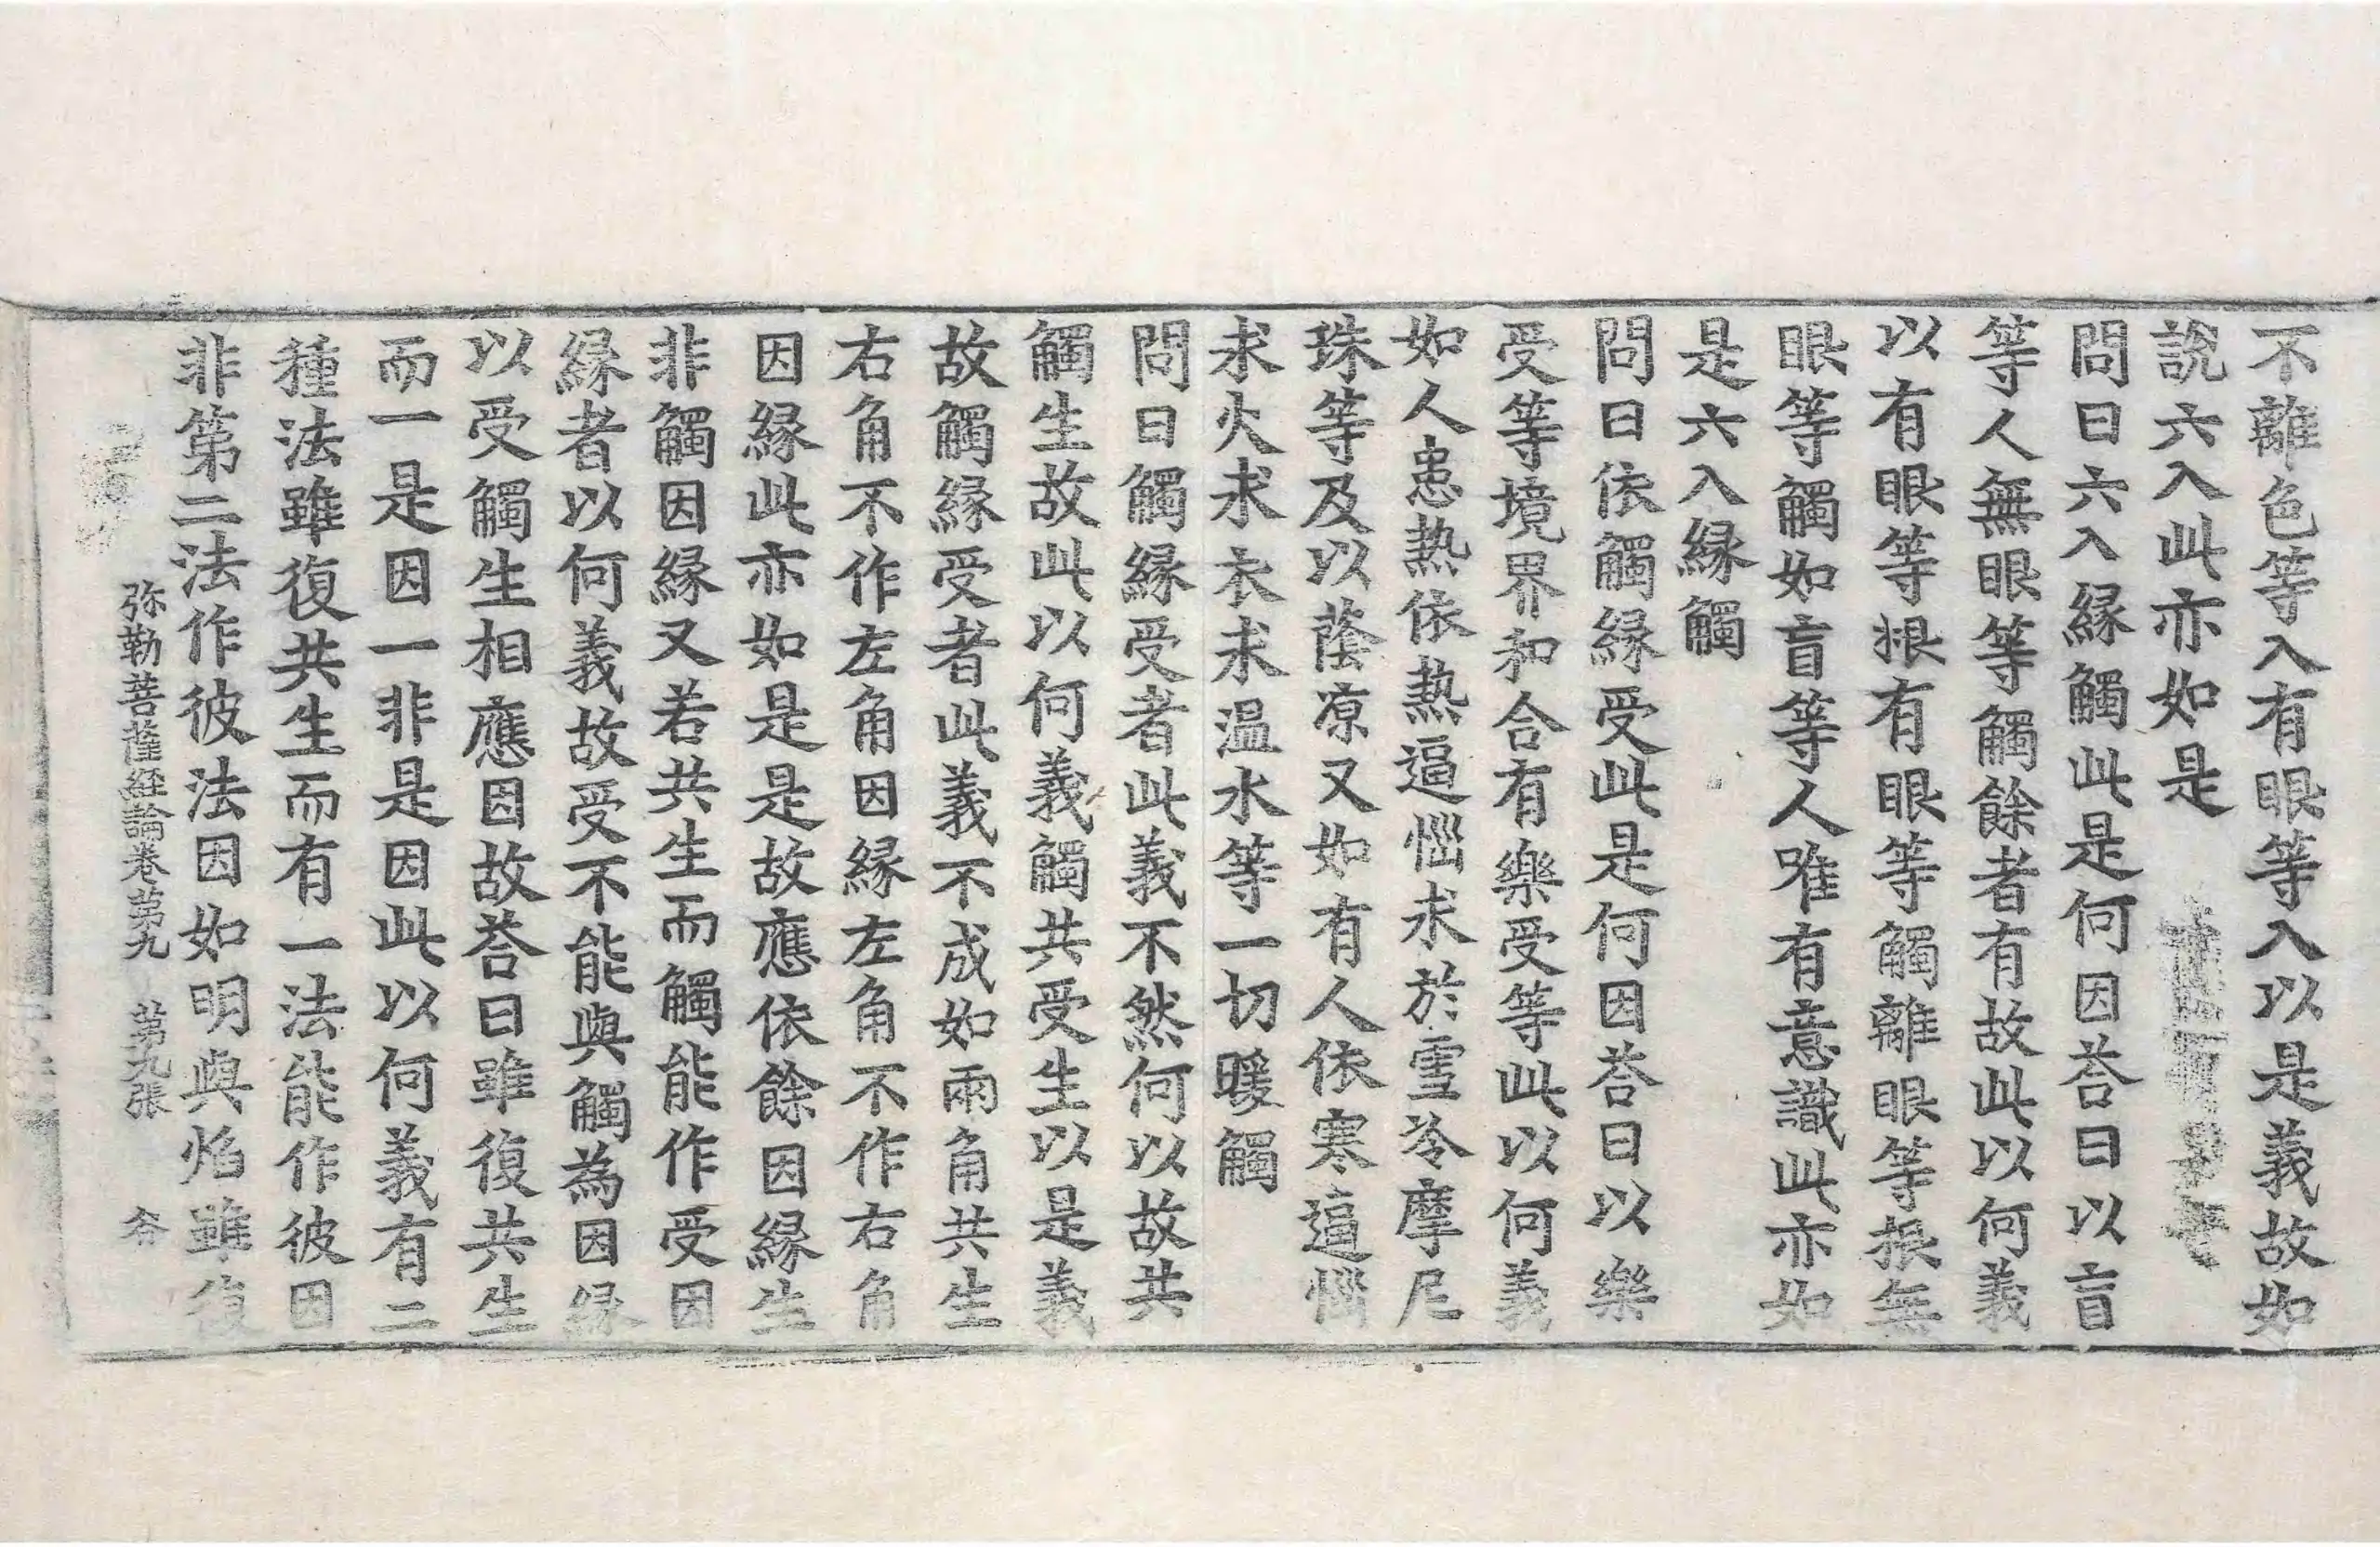 不離色等入有眼等入以是義故如
說六入此亦如是
問曰六入緣觸此是何因荅曰以盲
等人無眼等觸餘者有故此以何義
以有眼等根有眼等觸離眼等根無
眼等觸如盲等人唯有意識此亦如
是六入緣觸
問曰依觸緣受此是何因荅曰以樂
受等境界和合有樂受等此以何義
如人患熱依熱逼惱求於雪冷摩尼
珠等及以蔭凉又如有人依寒逼惱
求火求衣求温水等一切暖觸
問曰觸緣受者此義不然何以故共
觸生故此以何義觸共受生以是義
故觸緣受者此義不成如兩角共生
右角不作左角因緣左角不作右角
因緣此亦如是是故應依餘因緣生
非觸因緣又若共生而觸能作受因
緣者以何義故受不能與觸為因緣
以受觸生相應因故荅曰雖復共生
而一是因一非是因此以何義有二
種法雖復共生而有一法能作彼因
非第二法作彼法因如明與焰雖復
弥勒菩薩経論卷苐九 苐九張 谷